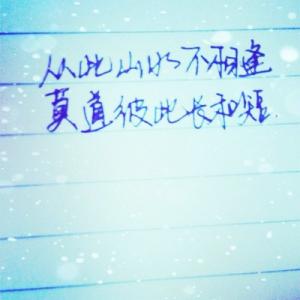 从此山水不相逢
莫道彼此长和短